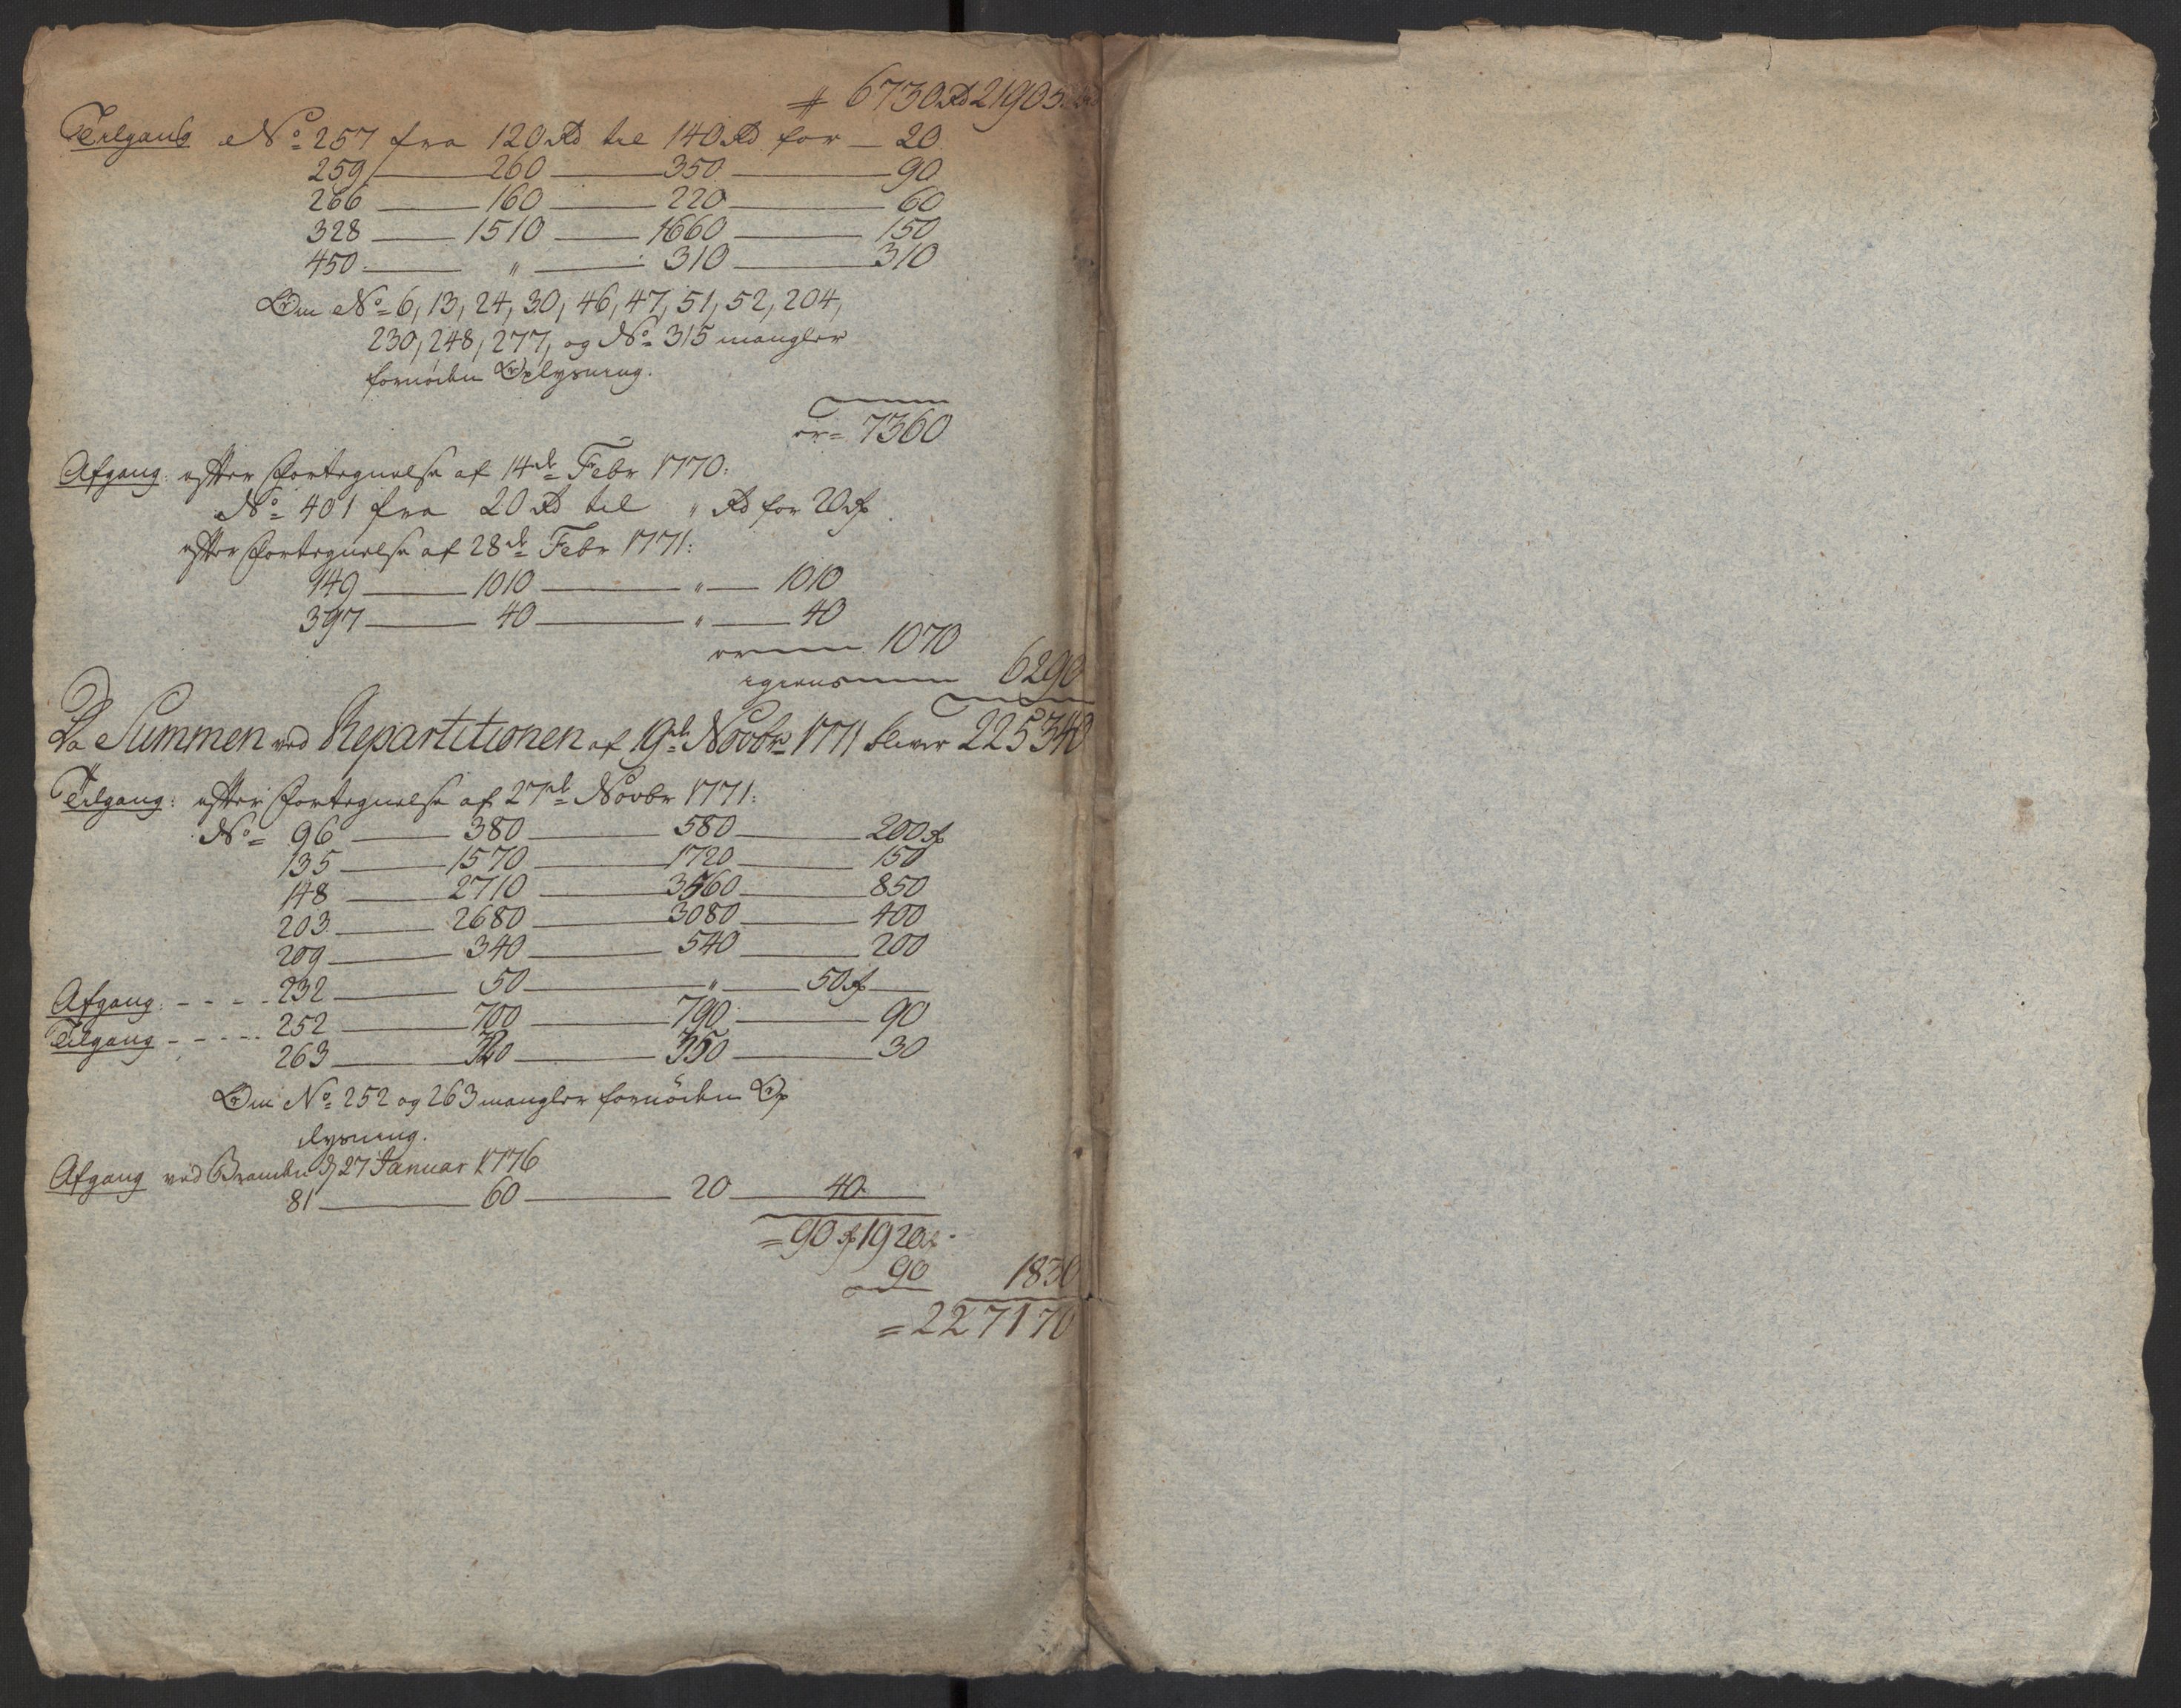 # 6730 Rd 21905
Tilgang No 257 fra 120 Rd til 140 Rd for — 20
259 — 260 — 350 — 90
266 — 160 — 220 — 60
328 — 1510 — 1660 — 150
450 — " — 310 — 310
Om No 6, 13, 24, 30, 46, 47, 51, 52, 204,
230, 248, 277, og No 315 mangler
fornöden Oplysning.
er = 7360
Afgang: efter Fortegnelse af 14de Febr 1770:
No 401 fra 20 Rd til " Rd for 20
efter Fortegnelse af 28de Febr 1771:
149 — 1010 — " — 1010
397 — 40 — " — 40
1070
igiens 6290
Da Summen ved Repartitionen af 19de Novbr 1771 bliver 225340
Tilgang: efter Fortegnelse af 27de Novbr 1771:
No 96 — 380 — 580 — 200
135 — 1570 — 1720 — 150
148 — 2710 — 3560 — 850
203 — 2680 — 3080 — 400
209 — 340 — 540 — 200
Afgang: - - - - 232 — 50 — " — 50
Tilgang - - - - - 252 — 700 — 790 — 90
263 — 320 — 350 — 30
Om No 252 og 263 mangler fornöden Op
lysning.
Afgang ved Branden d 27 Januar 1776
81 — 60 — 20 — 40
= 90 1920
90 1830
= 227170